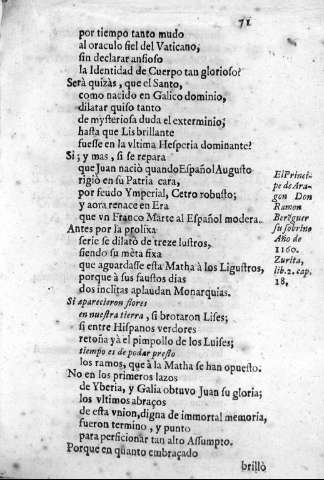 71
por tiempo tanto mudo
al oraculo fiel del Vaticano,
sin declarar ansioso
la Identidad de Cuerpo tan glorioso?
Serà quizàs, que el Santo,
como nacido en Galico dominio,
dilatar quiso tanto
de mysteriosa duda el exterminio;
hasta que Lis brillante
fuesse en la vltima Hesperia dominante?
Si; y mas, si se repara
que Juan naciò quando Español Augusto
rigiò en su Patria cara,
por feudo Ymperial, Cetro robusto;
y aora renace en Era
que vn Franco Marte al Español modera.
Antes por la prolixa
serie se dilatò de treze lustros,
siendo su mèta fixa
que aguardasse esta Matha à los Ligustros,
porque à sus faustos dias
dos inclitas aplaudan Monarquias.
Si aparecieron flores
en nuestra tierra, si brotaron Lises;
si entre Hispanos verdores
retoña yà el pimpollo de los Luises;
tiempo es de podar presto
los ramos, que à la Matha se han opuesto.
No en los primeros lazos
de Yberia, y Galia obtuvo Juan su gloria;
los vltimos abraços
de esta vnion, digna de immortal memoria,
fueron termino, y punto
para perficionar tan alto Assumpto.
Porque en quanto embraçado
brillò
El Princi-
pe de Ara-
gon Don
Ramon
Berèguer
su sobrino
Año de
1160.
Zurita,
lib. 2. cap.
18,